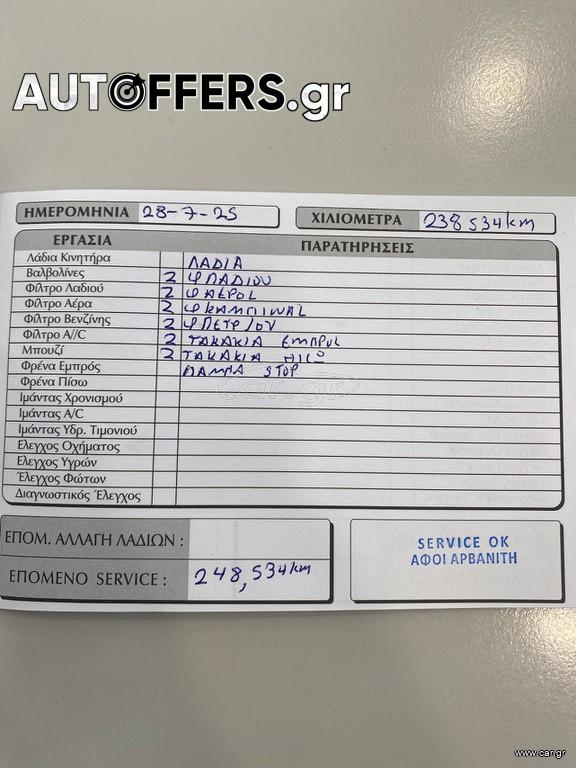 AUTOFFERS.gr
ΗΜΕΡΟΜΗΝΙΑ 28-7-25 ΧΙΛΙΟΜΕΤΡΑ 238534km
ΕΡΓΑΣΙΑ ΠΑΡΑΤΗΡΗΣΕΙΣ
Λάδια Κινητήρα ΛΑΔΙΑ
Βαλβολίνες 2 ΦΛΑΔΙΟΥ
Φίλτρο Λαδιού 2 ΦΑΕΡΟς
Φίλτρο Αέρα 2 ΦΚΑΜΠΙΝΑς
Φίλτρο Βενζίνης 2 ΦΠΕΤΡ/ΟΥ
Φίλτρο Α//C 2 ΤΑΚΑΚΙΑ ΕΜΠΡΟς
Μπουζί 2 ΤΑΚΑΚΙΑ ΠΙςΩ
Φρένα Εμπρός ΛΑΜΠΑ STOP
Φρένα Πίσω
Ιμάντας Χρονισμού
Ιμάντας A/C
Ιμάντας Υδρ. Τιμονιού
Έλεγχος Οχήματος
Έλεγχος Υγρών
Έλεγχος Φώτων
Διαγνωστικός Έλεγχος
car.gr
ΕΠΟΜ. ΑΛΛΑΓΗ ΛΑΔΙΩΝ :
ΕΠΟΜΕΝΟ SERVICE : 248,534km
SERVICE OK
ΑΦΟΙ ΑΡΒΑΝΙΤΗ
www.car.gr